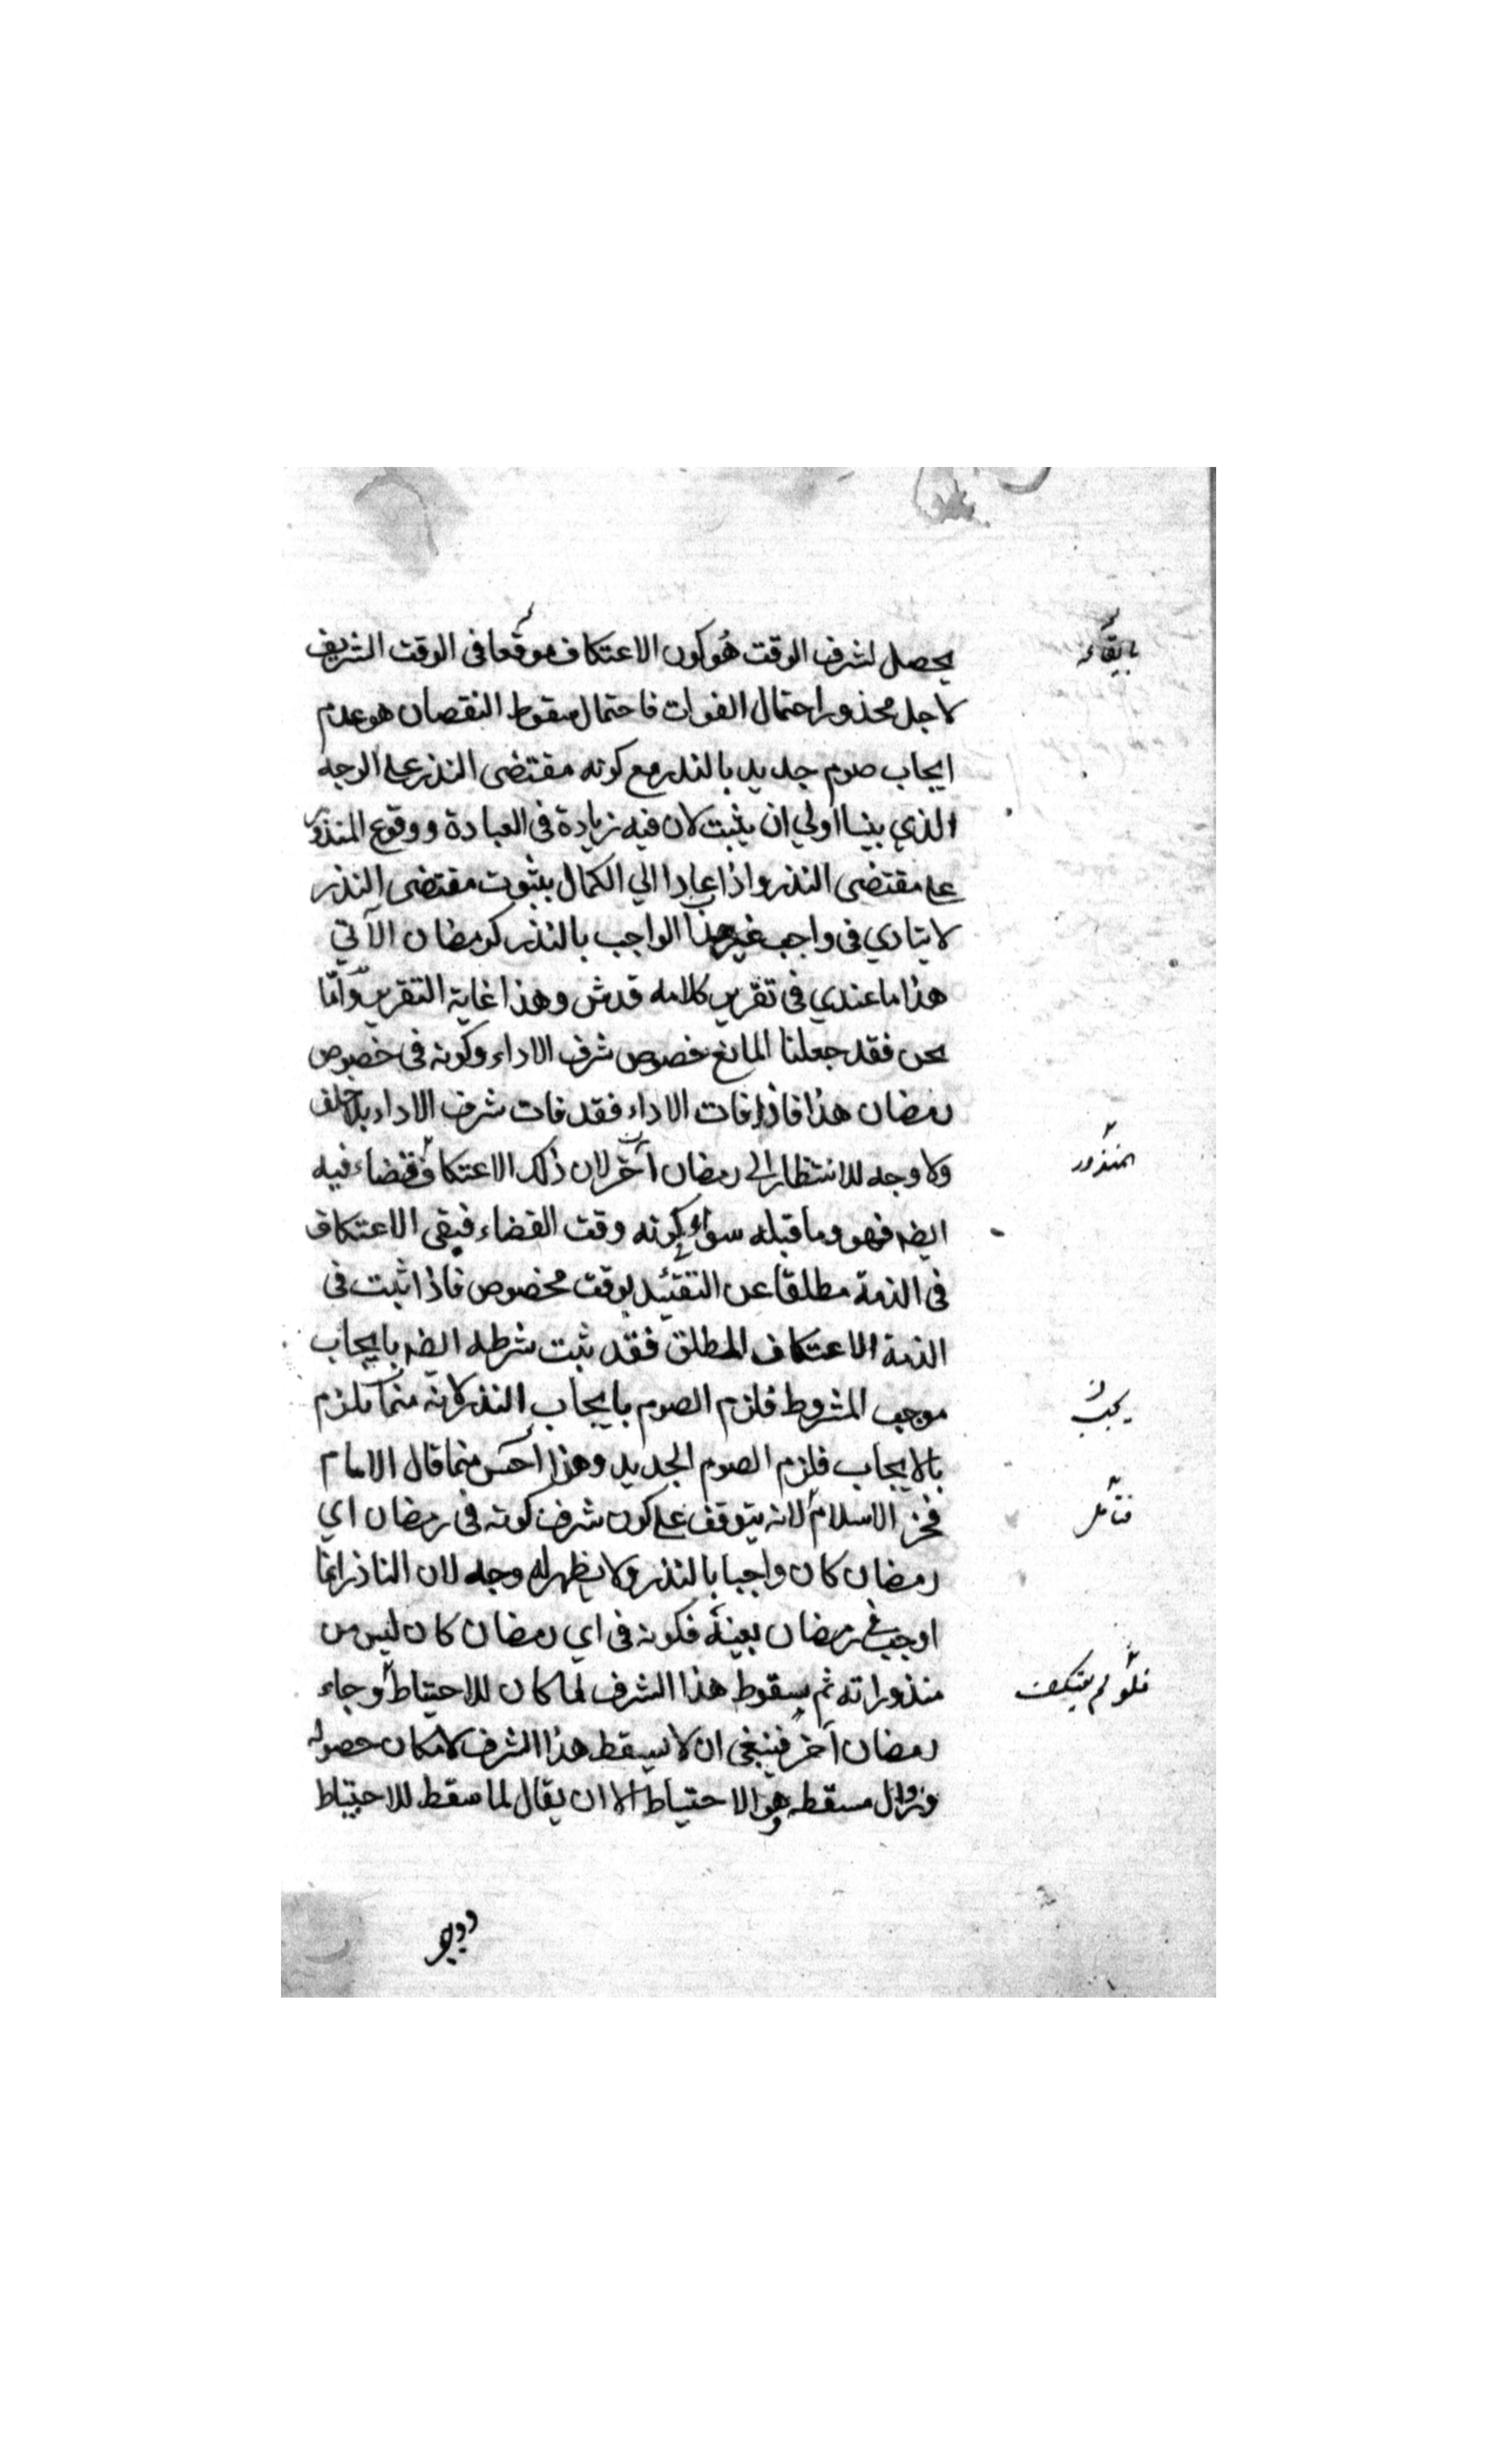 يحصل لشرف الوقت هو كون الاعتكاف موقعا فى الوقت الشريف
بايقاعه
لاجل محذور احتمال الفوات فاحتمال سقوط النقصان هو عدم
ايجاب صوم جديد بالنذر مع كونه مقتضى النذر على الوجه
الذي بينا اولي ان يثبت لان فيه زيادة فى العبادة ووقوع المنذور
على مقتضى النذر واذا عادا الي الكمال بثبوت مقتضى النذر
لا يتادي فى واجب غير هذا الواجب بالنذر كرمضان الآتي
هذا ما عندي فى تقرير كلامه قدس وهذا غاية التقرير وامّا
نحن فقد جعلنا المانع خصوص شرف الاداء وكونه فى خصوص
رمضان هذا فاذا فات الاداء فقد فات شرف الاداء بلا خلف
ولا وجه للانتظار الى رمضان آخر لان ذلك الاعتكاف قضاء فيه
المنذور
ايضه فهو وما قبله سواء كونه وقت القضاء فبقى الاعتكاف
فى الذمة مطلقا عن التقئيد بوقت مخصوص فاذا ثبت فى
الذمة الاعتكاف المطلق فقد ثبت شرطه ايضه بايجاب
موجب المشروط فلزم الصوم بايجاب النذر لانه مما يلزم
يجب
بالايجاب فلزم الصوم الجديد وهذا احسن مما قال الامام
فخر الاسلام لانه يتوقف على كون شرف كونه فى رمضان اي
فتأمل
رمضان كان واجبا بالنذر ولا يظهر له وجه لان الناذر انما
اوجب فى رمضان بعينه فكونه فى اي رمضان كان ليس من
منذوراته ثم سقوط هذا الشرف لما كان للاحتياط وجاء
فلو لم يعتكف
رمضان آخر فينبغى ان لا يسقط هذا الشرف لامكان حصوله
وزوال مسقطه وهو الاحتياط الا ان يقال لما سقط للاحتياط